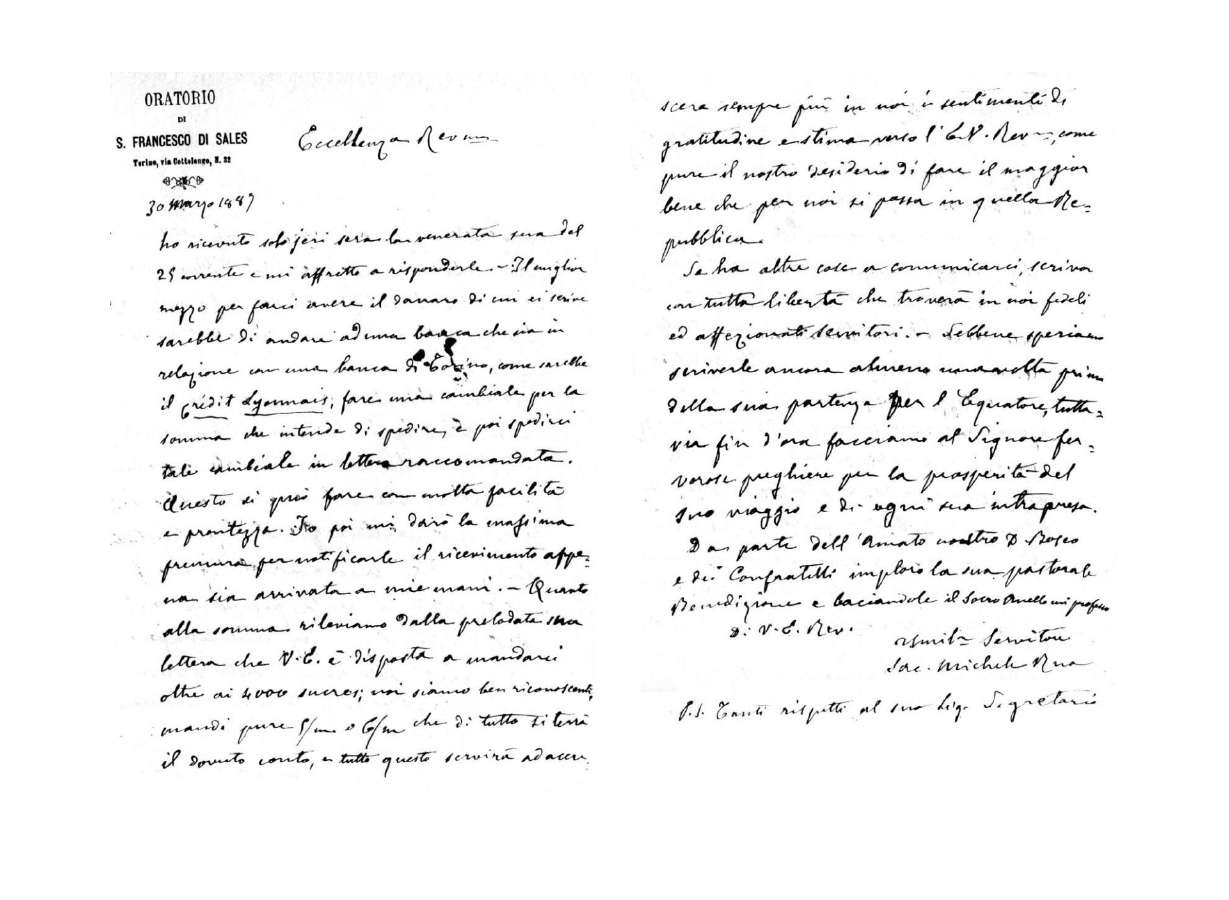 ORATORIO
DI
S. FRANCESCO DI SALES
Torino, via Cottolengo, N. 32
30 Marzo 1887
Eccellenza Rev.ma
ho ricevuto solo jeri sera la venerata sua del
25 corrente e mi affretto a risponderle. - Il miglior
mezzo per farci avere il danaro di cui ci scrive
sarebbe di andare ad una banca che sia in
relazione con una banca di Torino, come sarebbe
il Crédit Lyonnais, fare una cambiale per la
somma che intende di spedire, e poi spedirci
tale cambiale in lettera raccomandata.
Questo si può fare con molta facilità
e prontezza. Io poi mi darò la massima
premura per notificarle il ricevimento appe-
na sia arrivata a mie mani. - Quanto
alla somma rileviamo dalla prelodata sua
lettera che V. E. è disposta a mandarci
oltre ai 4000 sucres; noi siamo ben riconoscenti,
mandi pure 5/m o 6/m che di tutto si terrà
il dovuto conto, e tutto questo servirà ad accre
scere sempre più in noi i sentimenti di
gratitudine e stima verso l'E.V. Rev.ma, come
pure il nostro desiderio di fare il maggior
bene che per noi si possa in quella Re-
pubblica.
Se ha altre cose a comunicarci, scriva
con tutta libertà che troverà in noi fedeli
ed affezionati servitori. - Sebbene speriamo
scriverle ancora almeno una volta prima
della sua partenza per l'Equatore, tutta-
via fin d'ora facciamo al Signore fer-
vorose preghiere per la prosperità del
suo viaggio e di ogni sua intrapresa.
Da parte dell'Amato nostro D. Bosco
e dei Confratelli imploro la sua pastorale
Benedizione e baciandole il Sacro Anello mi professo
Di V. E. Rev.
Umil.mo Servitore
Sac. Michele Rua
P.S. Tanti rispetti al suo Sig. Segretario